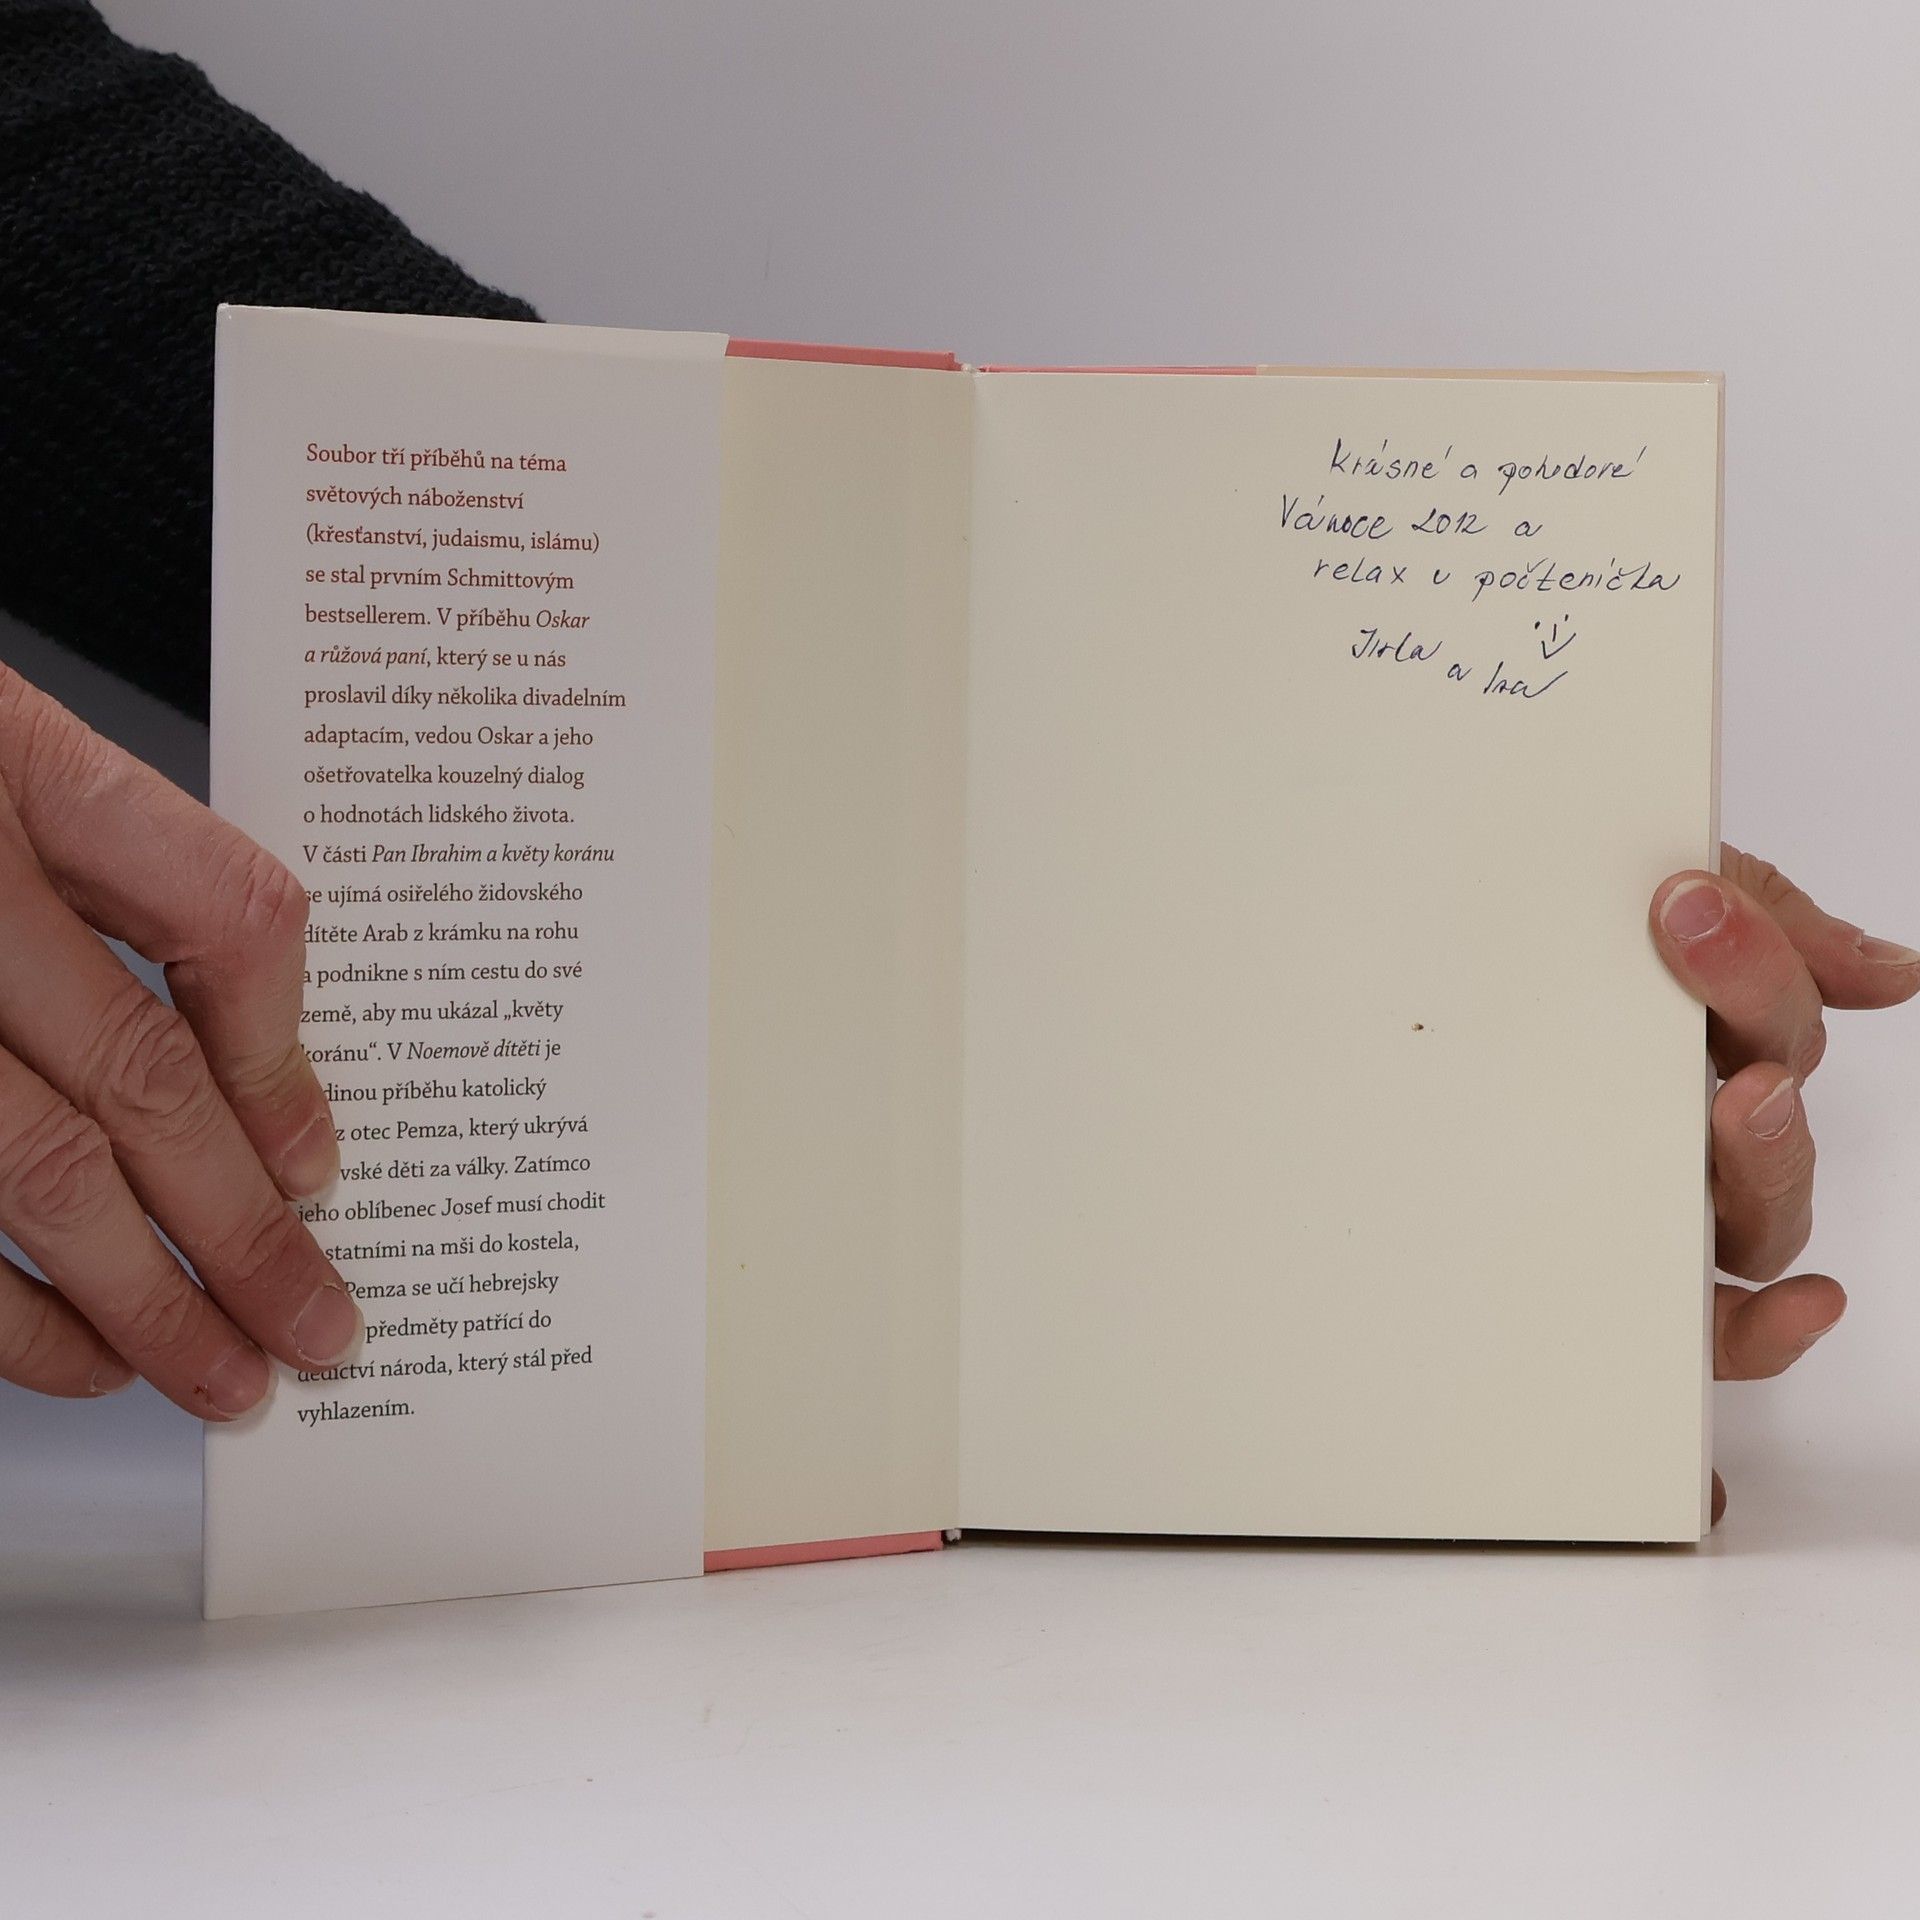 Soubor tří příběhů na téma
světových náboženství
(křesťanství, judaismu, islámu)
se stal prvním Schmittovým
bestsellerem. V příběhu Oskar
a růžová paní, který se u nás
proslavil díky několika divadelním
adaptacím, vedou Oskar a jeho
ošetřovatelka kouzelný dialog
o hodnotách lidského života.
V části Pan Ibrahim a květy koránu
se ujímá osiřelého židovského
dítěte Arab z krámku na rohu
a podnikne s ním cestu do své
země, aby mu ukázal „květy
koránu“. V Noemově dítěti je
příběhu katolický
otec Pemza, který ukrývá
děti za války. Zatímco
jeho oblíbenec Josef musí chodit
na mši do kostela,
Pemza se učí hebrejsky
předměty patřící do
dědictví národa, který stál před
vyhlazením.
Krásné a pohodové
Vánoce 2012 a
relax u počteníčka
a